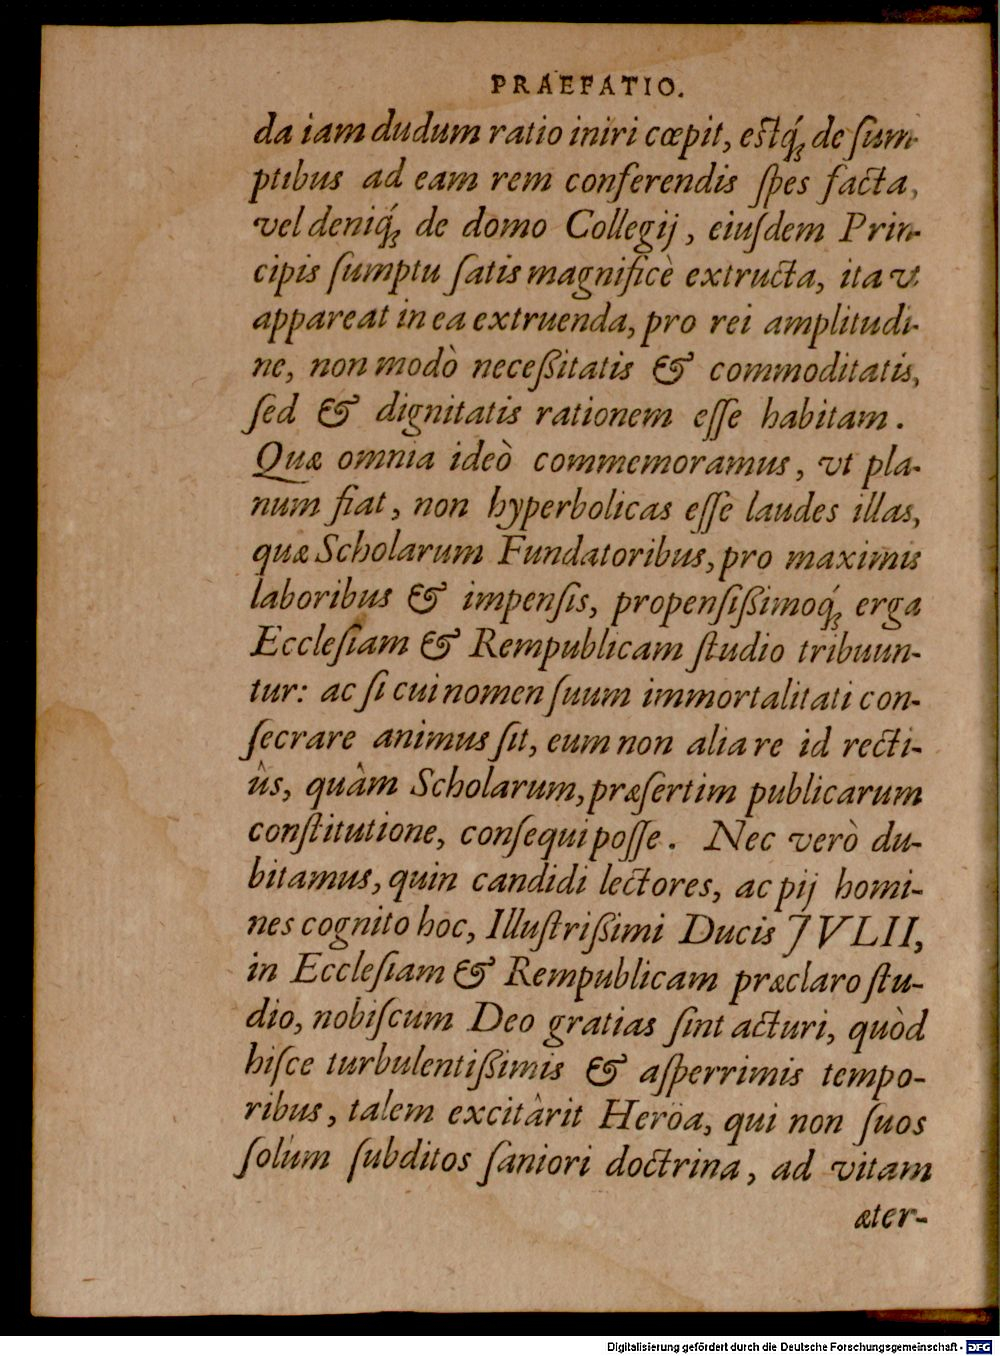 PRAEFATIO.
da iam dudum ratio iniri cœpit, estq́ꝫ de ſum-
ptibus ad eam rem conferendis ſpes facta,
vel deniq́ꝫ de domo Collegij, eiuſdem Prin-
cipis ſumptu ſatis magnificè extructa, ita vt
appareat in ea extruenda, pro rei amplitudi-
ne, non modò neceßitatis & commoditatis,
ſed & dignitatis rationem eſſe habitam.
Quæ omnia ideò commemoramus, vt pla-
num fiat, non hyperbolicas eſſe laudes illas,
quæ Scholarum Fundatoribus, pro maximis
laboribus & impenſis, propenſißimoq́ꝫ erga
Eccleſiam & Rempublicam ſtudio tribuun-
tur: ac ſi cui nomen ſuum immortalitati con-
ſecrare animus ſit, eum non alia re id recti-
ûs, quâm Scholarum, præſertim publicarum
conſtitutione, conſequi poſſe. Nec verò du-
bitamus, quin candidi lectores, ac pij homi-
nes cognito hoc, Illuſtrißimi Ducis JVLII,
in Eccleſiam & Rempublicam præclaro ſtu-
dio, nobiſcum Deo gratias ſint acturi, quòd
hiſce turbulentißimis & aſperrimis tempo-
ribus, talem excitârit Heröa, qui non ſuos
ſolúm ſubditos ſaniori doctrina, ad vitam
æter-
Digitalisierung gefördert durch die Deutsche Forschungsgemeinschaft - DFG